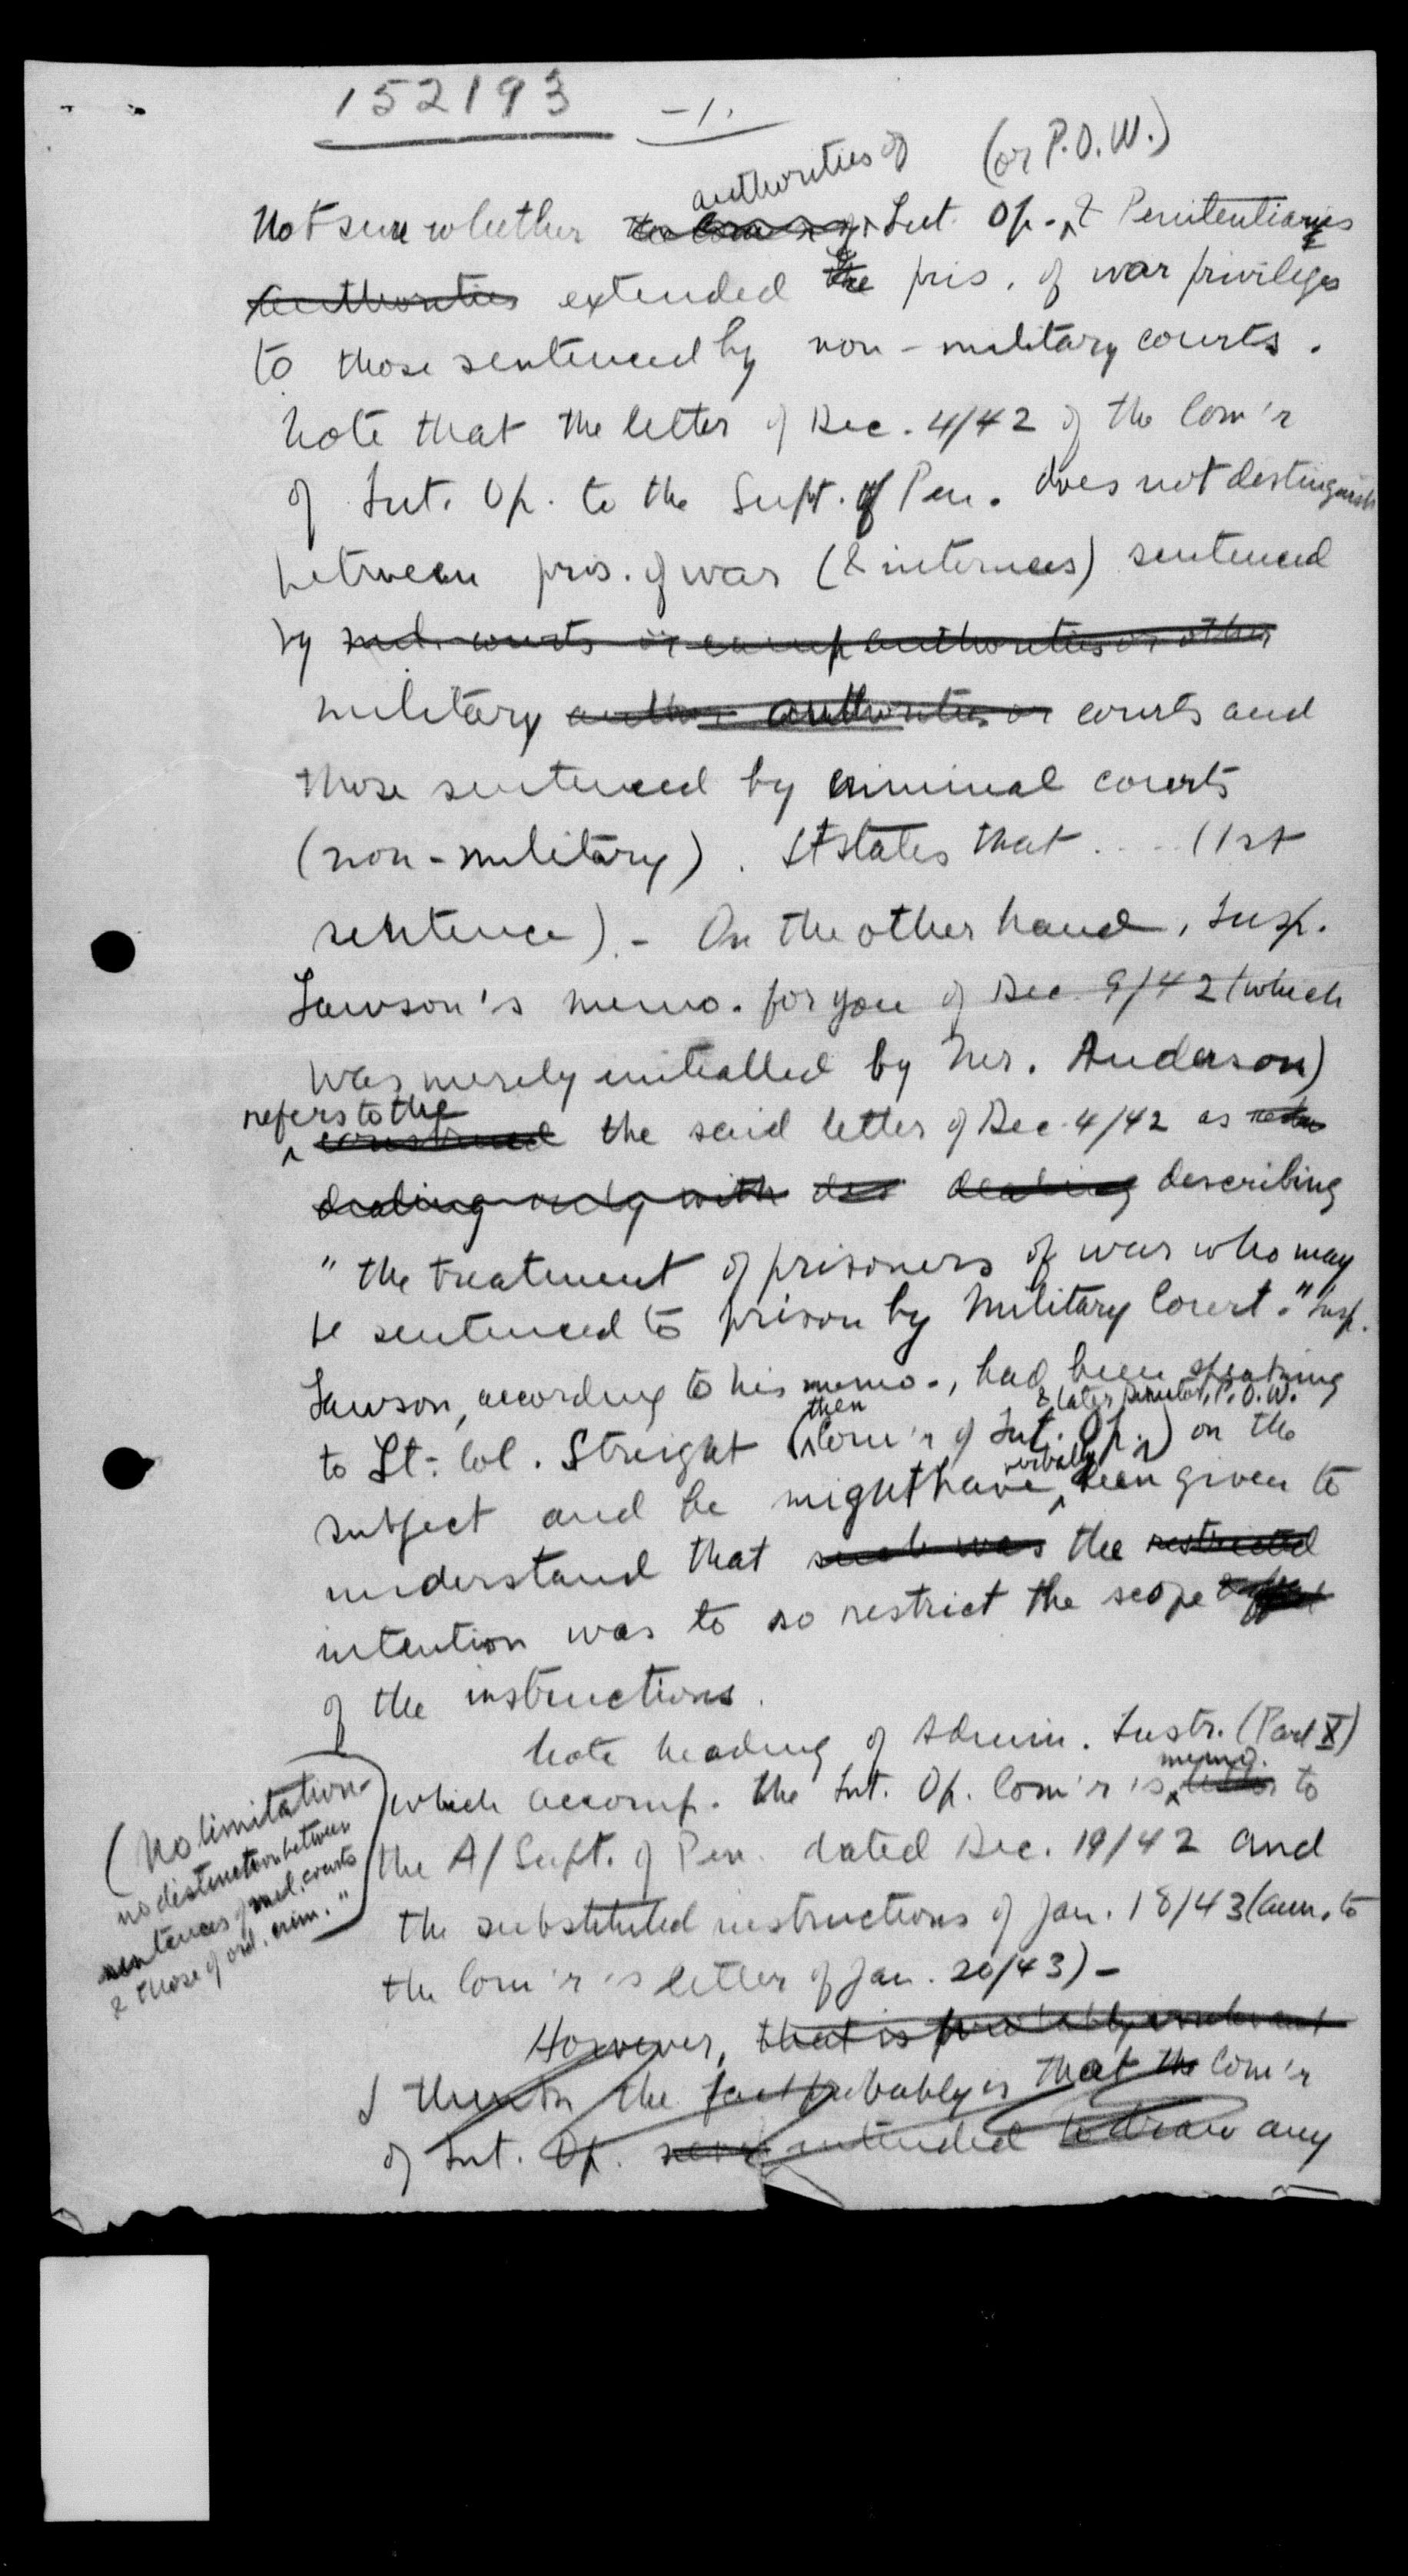 152193 -1.
authorities of (or P.O.W.)
Not sure whether Int. Op. & Penitentiaries
authorities extended the pris. of war privileges
to those sentenced by non-military courts.
Note that the letter of Dec. 4/42 of the Com'r
of Int. Op. to the Supt. of Pen. does not distinguish
between pris. of war (& internees) sentenced
by mil. courts or camp authorities or other
military author authorities or courts and
those sentenced by criminal courts
(non-military). It states that .... (1st
sentence). - On the other hand, Insp.
Lawson's memo. for you of Dec. 9/42 (which
was merely initialled by Mr. Anderson)
refers to the
construed the said letter of Dec. 4/42 as
dealing only with des dealing describing
"the treatment of prisoners of war who may
be sentenced to prison by Military Court." Insp.
Lawson, according to his memo., had been speaking
then & later Director, P.O.W.
to Lt-Col. Streight (Com'r of Int. Op.) on the
verbally
subject and he might have been given to
understand that such was the restricted
intention was to so restrict the scope
of the instructions.
Note heading of Admin. Instr. (Part X)
memo.
which accomp. the Int. Op. Com'r's letter to
the A/Supt. of Pen. dated Dec. 19/42 and
the substituted instructions of Jan. 18/43 (ann. to
the Com'r's letter of Jan. 20/43) -
(No limitation -
no distinction between
sentences of mil. courts
& those of ord. crim."
However, that is probably irrelevant
I think the fact probably is that the Com'r
of Int. Op. never intended to draw any